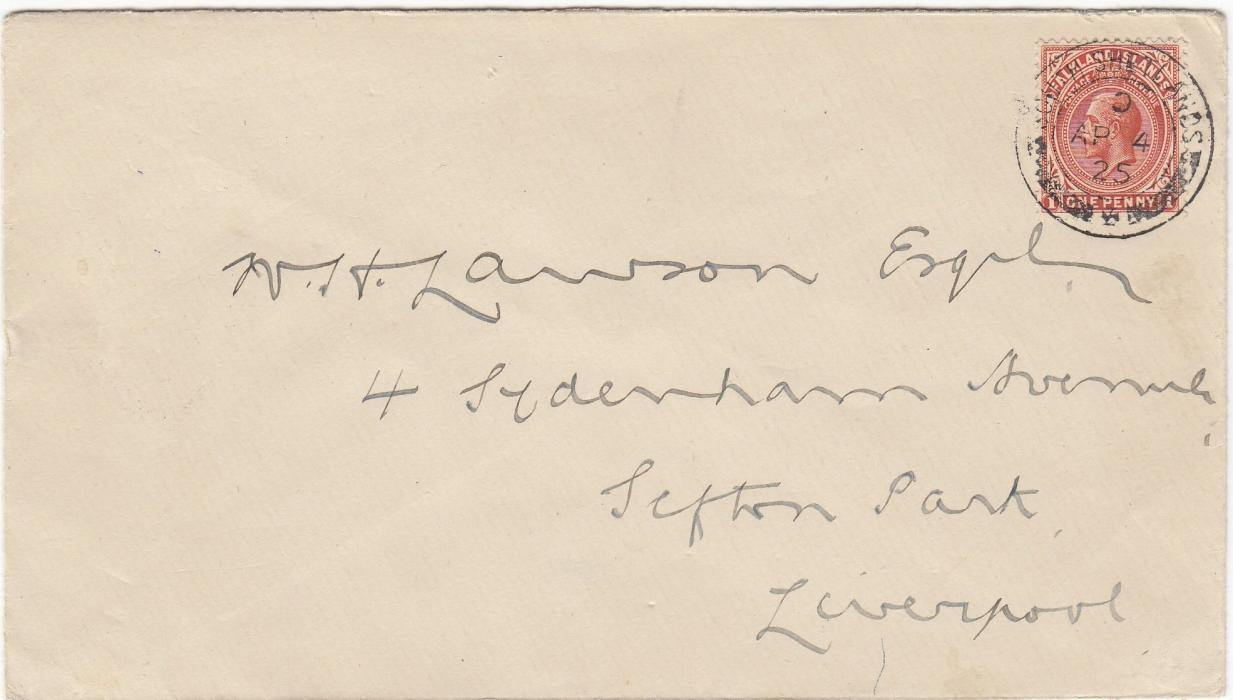 FALKLAND ISLANDS
POSTAGE & REVENUE
SOUTH SHETLANDS
AP 4
25
1 ONE PENNY 1
W. H. Lawson Esqre,
4 Sydenham Avenue,
Sefton Park,
Liverpool